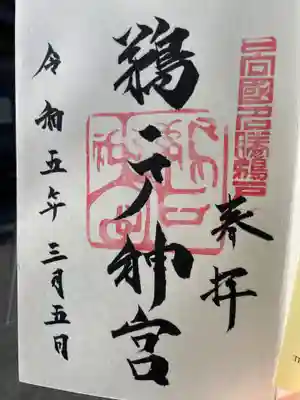 日向國名勝鵜戸
奉拝
鵜戸神宮
令和五年三月五日